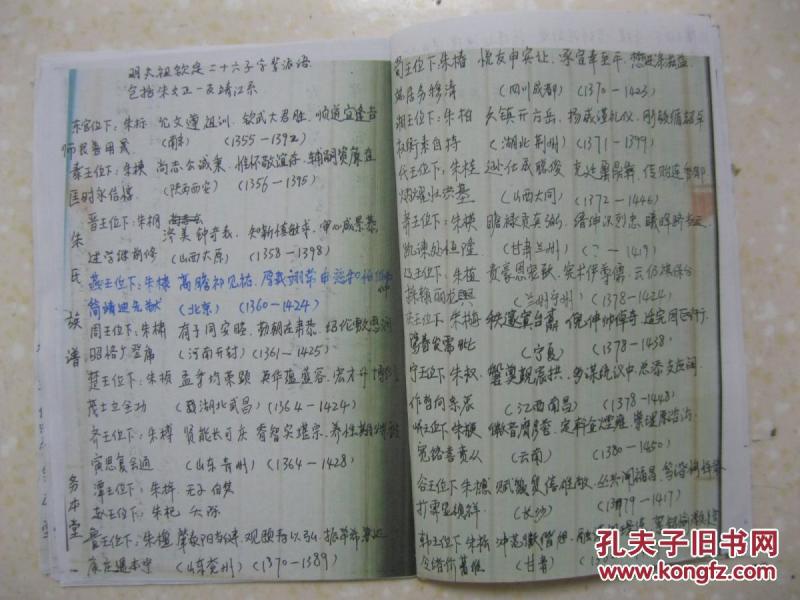 明太祖钦定二十六子字辈派语
包括朱文正一支靖江系
东宫位下:朱标 允文遵祖训 钦武大君胜 顺道宜逢吉
师良善用晟 (南京) (1355-1392)
秦王位下:朱樉 尚志公诚秉 惟怀敬谊存 辅嗣资廉直
匡时永信惇 (陕西西安) (1356-1395)
晋王位下:朱棡
济美钟奇表 知新慎敏求 审心咸景慕
述学继前修 (山西太原) (1358-1398)
燕王位下:朱棣 高瞻祁见祐 厚载翊常由
简靖迪先猷 (北京) (1360-1424)
周王位下:朱橚 有子同安睦 勤朝在肃恭 绍伦敷惠润
昭恪广登庸 (河南开封) (1361-1425)
楚王位下:朱桢 孟季均荣显 英华蕴盛容 宏才升博
茂士立全功 (湖北武昌) (1364-1424)
齐王位下:朱榑 贤能长可庆 睿智实堪宗 养性
寅思复会通 (山东青州) (1364-1428)
潭王位下:朱梓 无子
赵王位下:朱杞
鲁王位下:朱檀 肇泰阳当健 观颐寿以弘 振举
康庄遇本宁 (山东兖州) (1370-1389)
朱氏族谱
务本堂
蜀王位下朱椿 悦友申宾让 承宣奉至平
端居务穆清 (四川成都) (1370-1423)
湘王位下:朱柏 久镇开方岳 扬威谨礼仪 刚毅循超卓
权衡素自持 (湖北荆州) (1371-1399)
代王位下:朱桂 逊仕成聪俊 充廷鼐鼎彝 传贻连秀郁
炳耀壮洪基 (山西大同) (1372-1446)
肃王位下:朱楧 瞻禄贡真弼 缙绅识烈忠 曦晖跻
凯谏处恒隆 (甘肃兰州) (?-1419)
辽王位下:朱植 贵豪恩宠致 宪术俨尊儒 云仍祺保合
操翰丽龙舆 (1378-1424)
朱㮵 秩邃寘台鼒 倪伸帅倬奇
(宁夏) (1378-1438)
宁王位下:朱权 磐奠觐宸拱 多谋统议中 总添支庶阔
作哲向亲衷 (江西南昌) (1378-1448)
岷王位下:朱楩 徽音膺彦誉 定幹企禋雍 崇理原谘访
宽镕喜贲从 (云南) (1380-1450)
谷王位下:朱橞 赋质僖雄敞
(长沙) (1379-1417)
韩王位下:朱松 冲范徵偕旭
(甘肃)